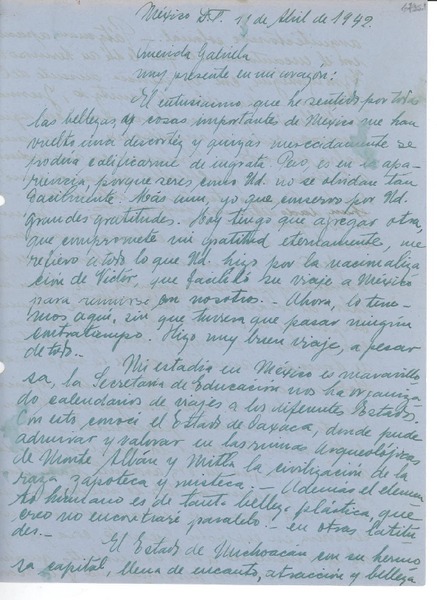 México D.F. 11 de Abril de 1942.
Querida Gabriela
muy presente en mi corazón:
El entusiasmo que he sentido por todas
las bellezas, y cosas importantes de México me han
vuelto una descortéz y quizás merecidamente se
podría calificarme de ingrata. Pero, es en la apa-
riencia, porque seres como Ud. no se olvidan tan
facilmente. Más aun, yo que conservo por Ud.
grandes gratitudes. Hoy tengo que agregar otra,
que compromete mi gratitud eternamente, me
refiero a todo lo que Ud. hizo por la nacionaliza-
ción de Victor, que facilitó su viaje a México
para reunirse con nosotros. - Ahora, lo tene-
mos aquí, sin que tuviera que pasar ningún
contratiempo. Hizo muy buen viaje, a pesar
de todo. -
Mi estadía en México es maravillo-
sa, la Secretaría de Educación nos ha organiza-
do calendarios de viajes a los diferentes Estados.
Con esto, conocí el Estado de Oaxaca, donde pude
admirar y valorar en las ruinas Arqueológicas
de Monte Albán y Mitla la civilización de la
raza zapoteca y misteca. - Además el elemen-
to humano es de tanta belleza plástica, que
creo no encontraré paralelo - en otras latitu-
des. -
El Estado de Michoacán con su hermo-
sa capital, llena de encanto, atracción y belleza